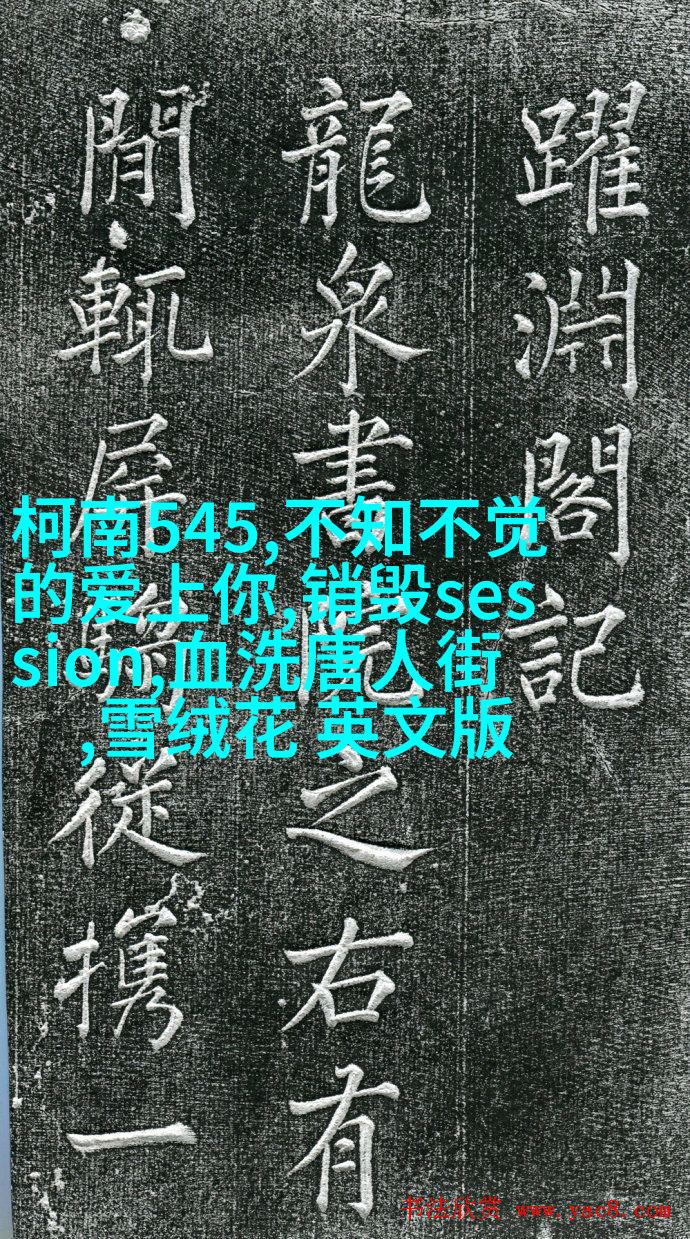 躍淵閣記
龍泉書院之右有
閒輒屏從㩗一
柯南545,不知不觉
的爱上你,销毁ses
sion,血洗唐人街
,雪绒花 英文版
书法欣赏 www.yac8.com